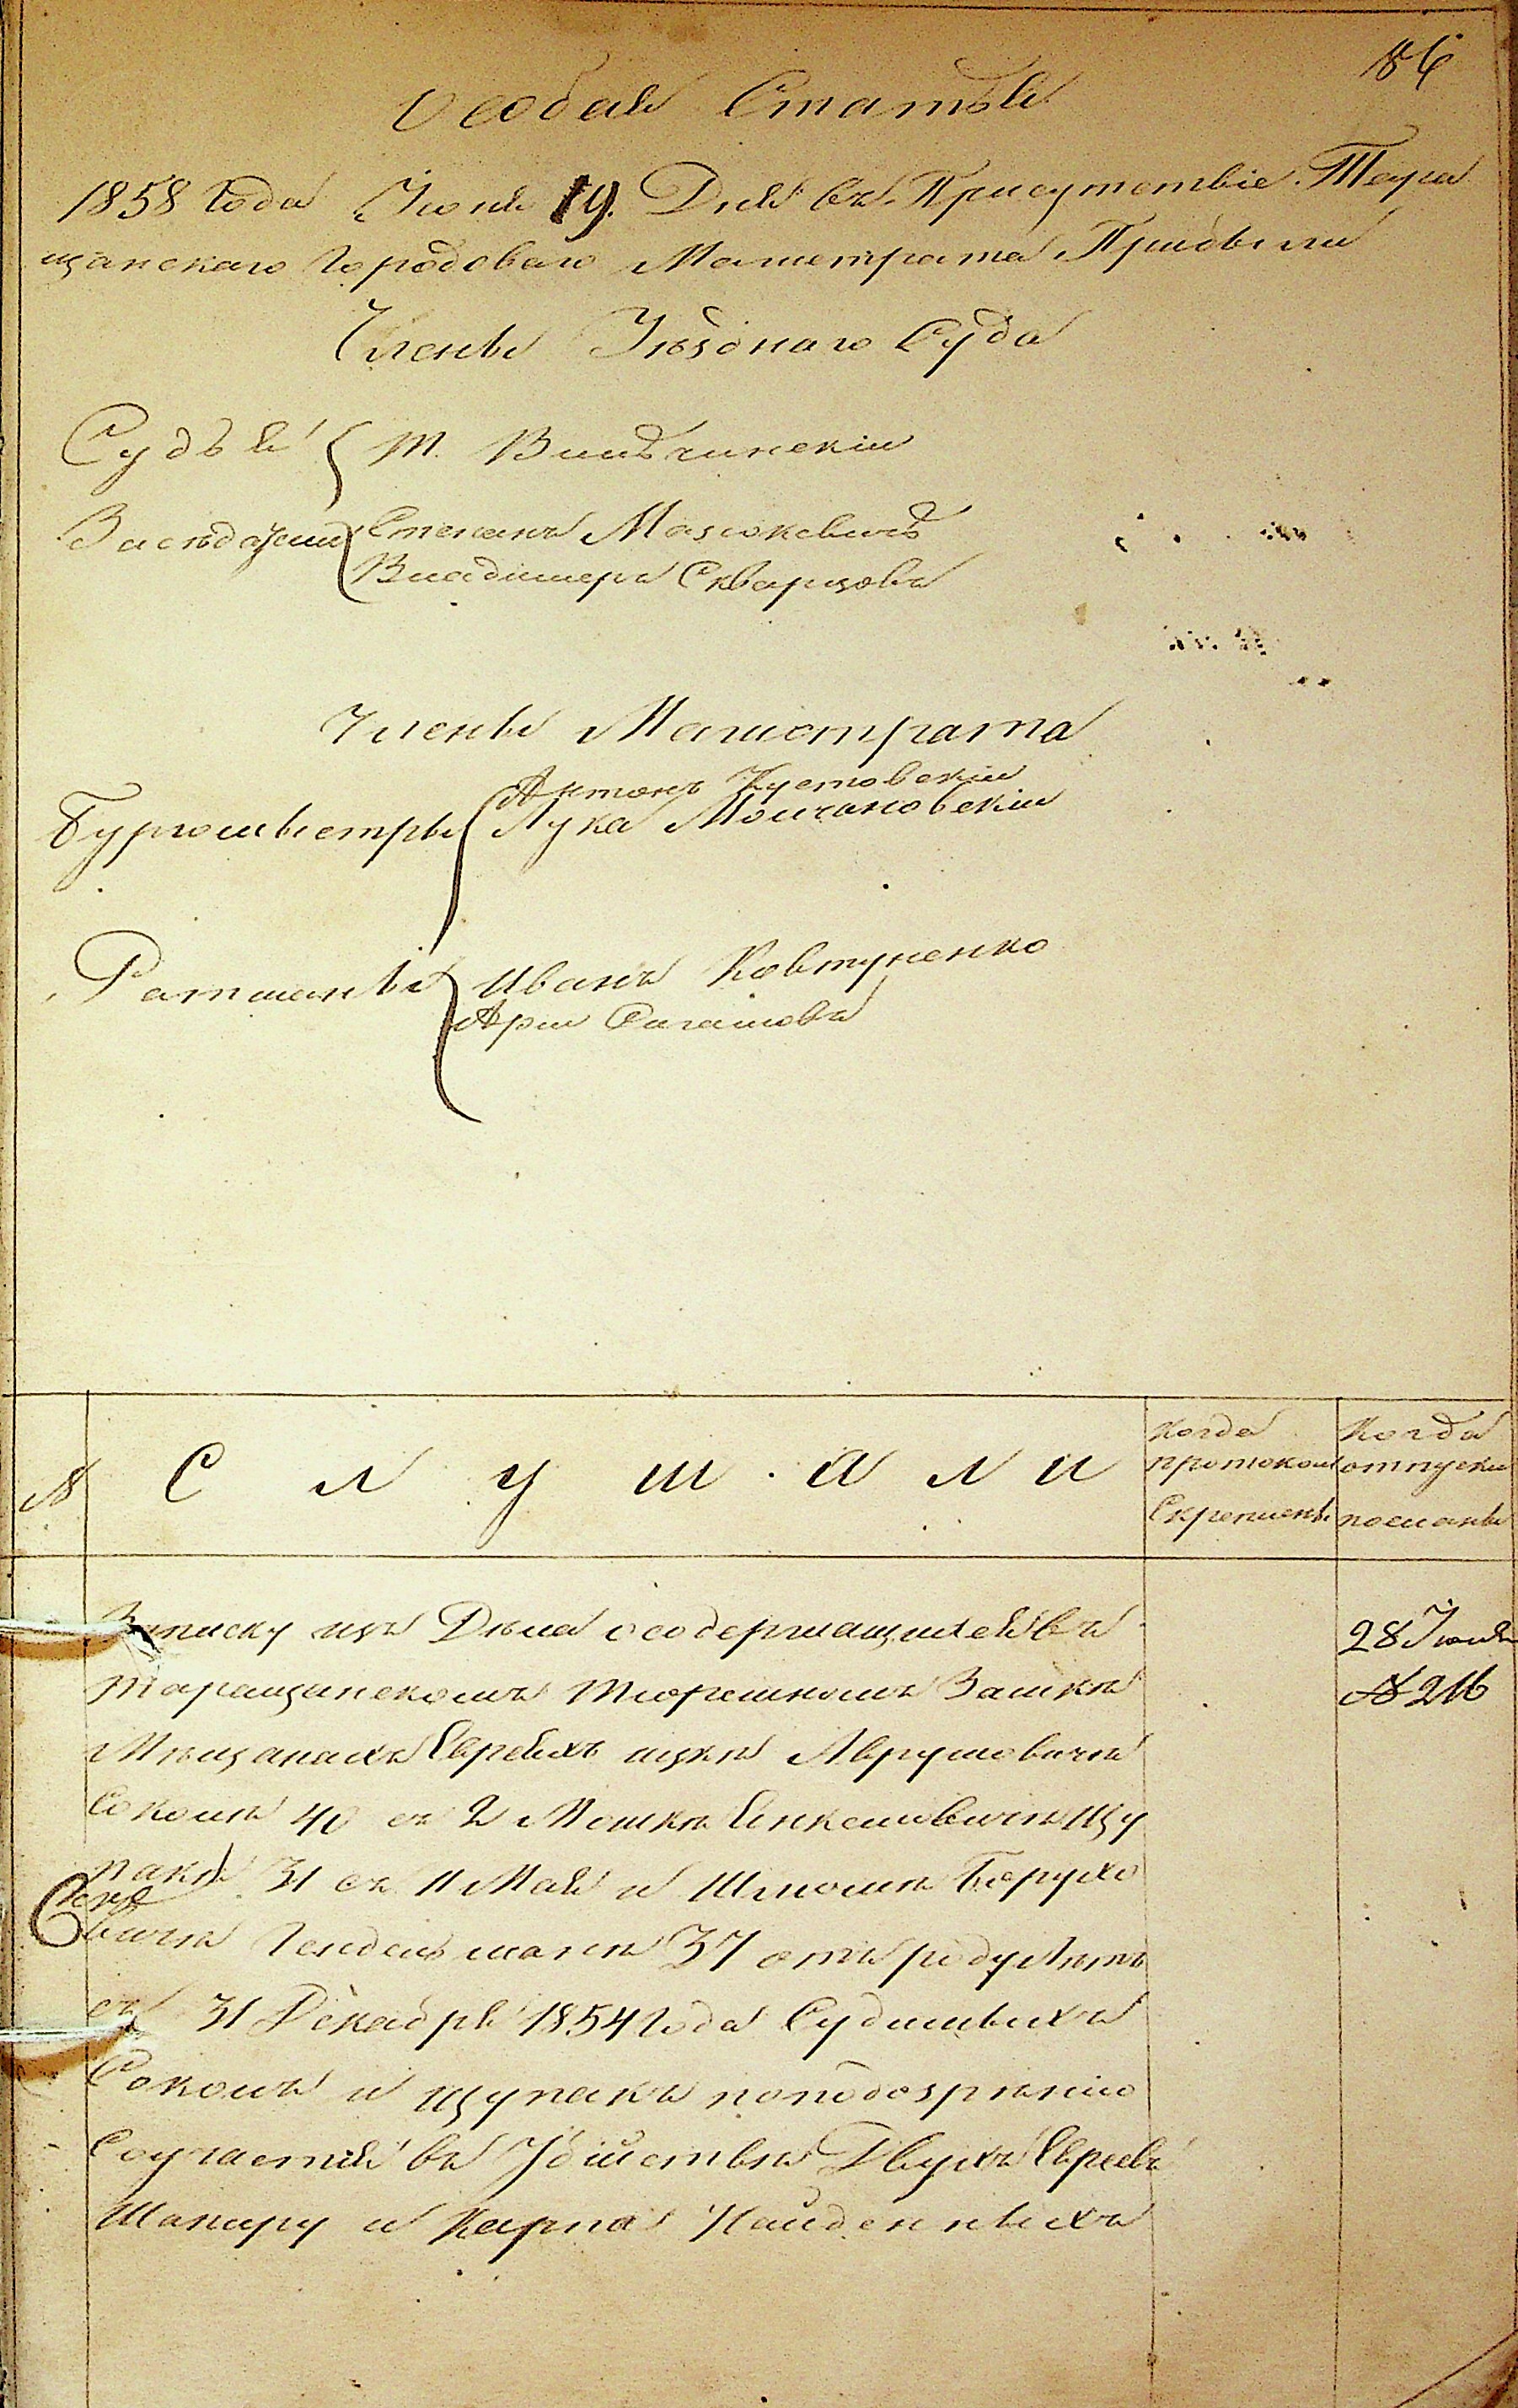 86
Особая Статья
1858 Года Іюня 19. Дня въ Присутствіе Тара
щанскаго Городоваго Магистрата Прибыли
Члены Уѣзднаго Суда
Судья Т. Вильчинскій
Засѣдатели Степанъ Мазюкевичъ
Владимеръ Скварцовъ
Члены Магистрата
Антонъ Кустовскій
Бургомыстры Лука Молчановскій
Ратманы Иванъ Ковтуненко
Арій
№ Слушали
Когда протоколы Скреплены
Когда отпуски посланы
Записку изъ Дѣла о содержащихся въ
Таращанскомъ Тюремномъ Замкѣ
Мѣщанахъ Евреяхъ Ицкѣ Аврумовичѣ
Соколѣ 40 съ 2 Мошкѣ Янкелювичѣ Щу
пакѣ 31 съ 11 Мая и Шлюмѣ Борухо
вичѣ Гендельманѣ 37 отъ роду Лѣтъ
съ 31 Декабря 1854 Года Судимыхъ
Соколъ и Щупакъ по подозрѣнію
Соучастія въ Убійствѣ Двухъ Евреевъ
Шапиру и Карпа Найденныхъ
28 Іюня
№ 216